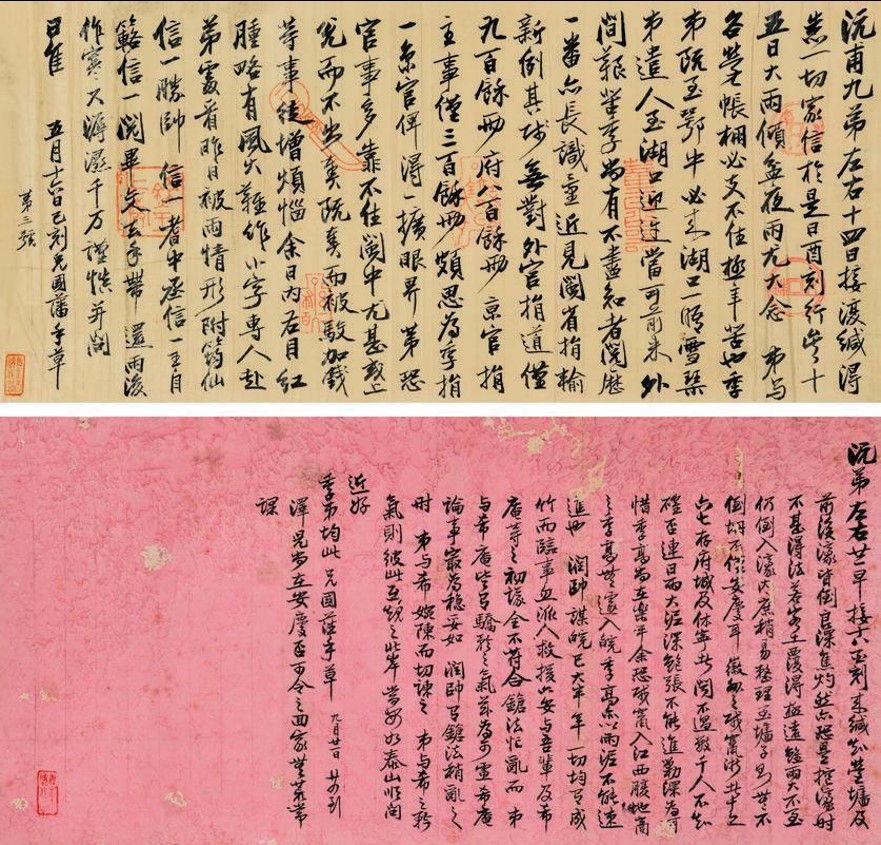 沅甫九弟左右十四日接渡緘得
悉一切家信於是日酉刻行
五日大雨傾盆夜雨尤大念 弟与
各營帳棚必支不住極辛苦也季
弟既至鄂中必来湖口一晤雪琴
弟遣人至湖口迎迓當可前来外
間艱苦季尚有不盡知者閱歷
一番亦長識量近見閩省捐輸
新例其城無對外官指道僅
九百餘兩府八百餘兩京官捐
主事僅三百餘兩頗思為季捐
一京官俾得一擴眼界第恐
官事多靠不住閩中尤甚或上
兌而不出奏既奏而被駁加錢
等事徒增煩惱余日内右目紅
腫略有風火難作小字專人赴
弟處看昨日被雨情形附筠仙
信一勝帥信一耆中丞信一
信一閱畢交去手帶還雨後
作寒又潮濕千万謹慎并問
日佳 五月十六日巳刻兄國藩手草
第三號
沅弟左右廿早接十八刻来緘知營墻及
前後濠皆倒良深焦灼然亦恐是挖濠時
不甚得法若客土覆得極遠雖雨大不至
仍倒入濠内庶稍易整理至墻子則無不
倒不僅安慶耳徽州之賊竄浙者十之
六七存府城及休寧者聞不過數千人不知
確否連日雨大泥深鮑張不能進勦深為可
惜季高尚在樂平余恐賊竄入江西腹地商
之季高無遽入皖季高亦以雨泥不能速
進也 潤帥謀皖已大半年一切均有成
竹而臨事忽派人救援六安与吾輩及希
庵等之初議全不符合鎗法忙亂而弟
与希庵皆有驕矜之氣茲為可慮希庵
論事最為穩妥如潤帥有鎗法稍亂之
時 弟与希婉陳而切諫之弟与希之矜
氣則彼此互規之北岸當安如泰山順問
近好
季弟均此 兄國藩手草 九月廿一日
澤兄尚在安慶否可令之回家